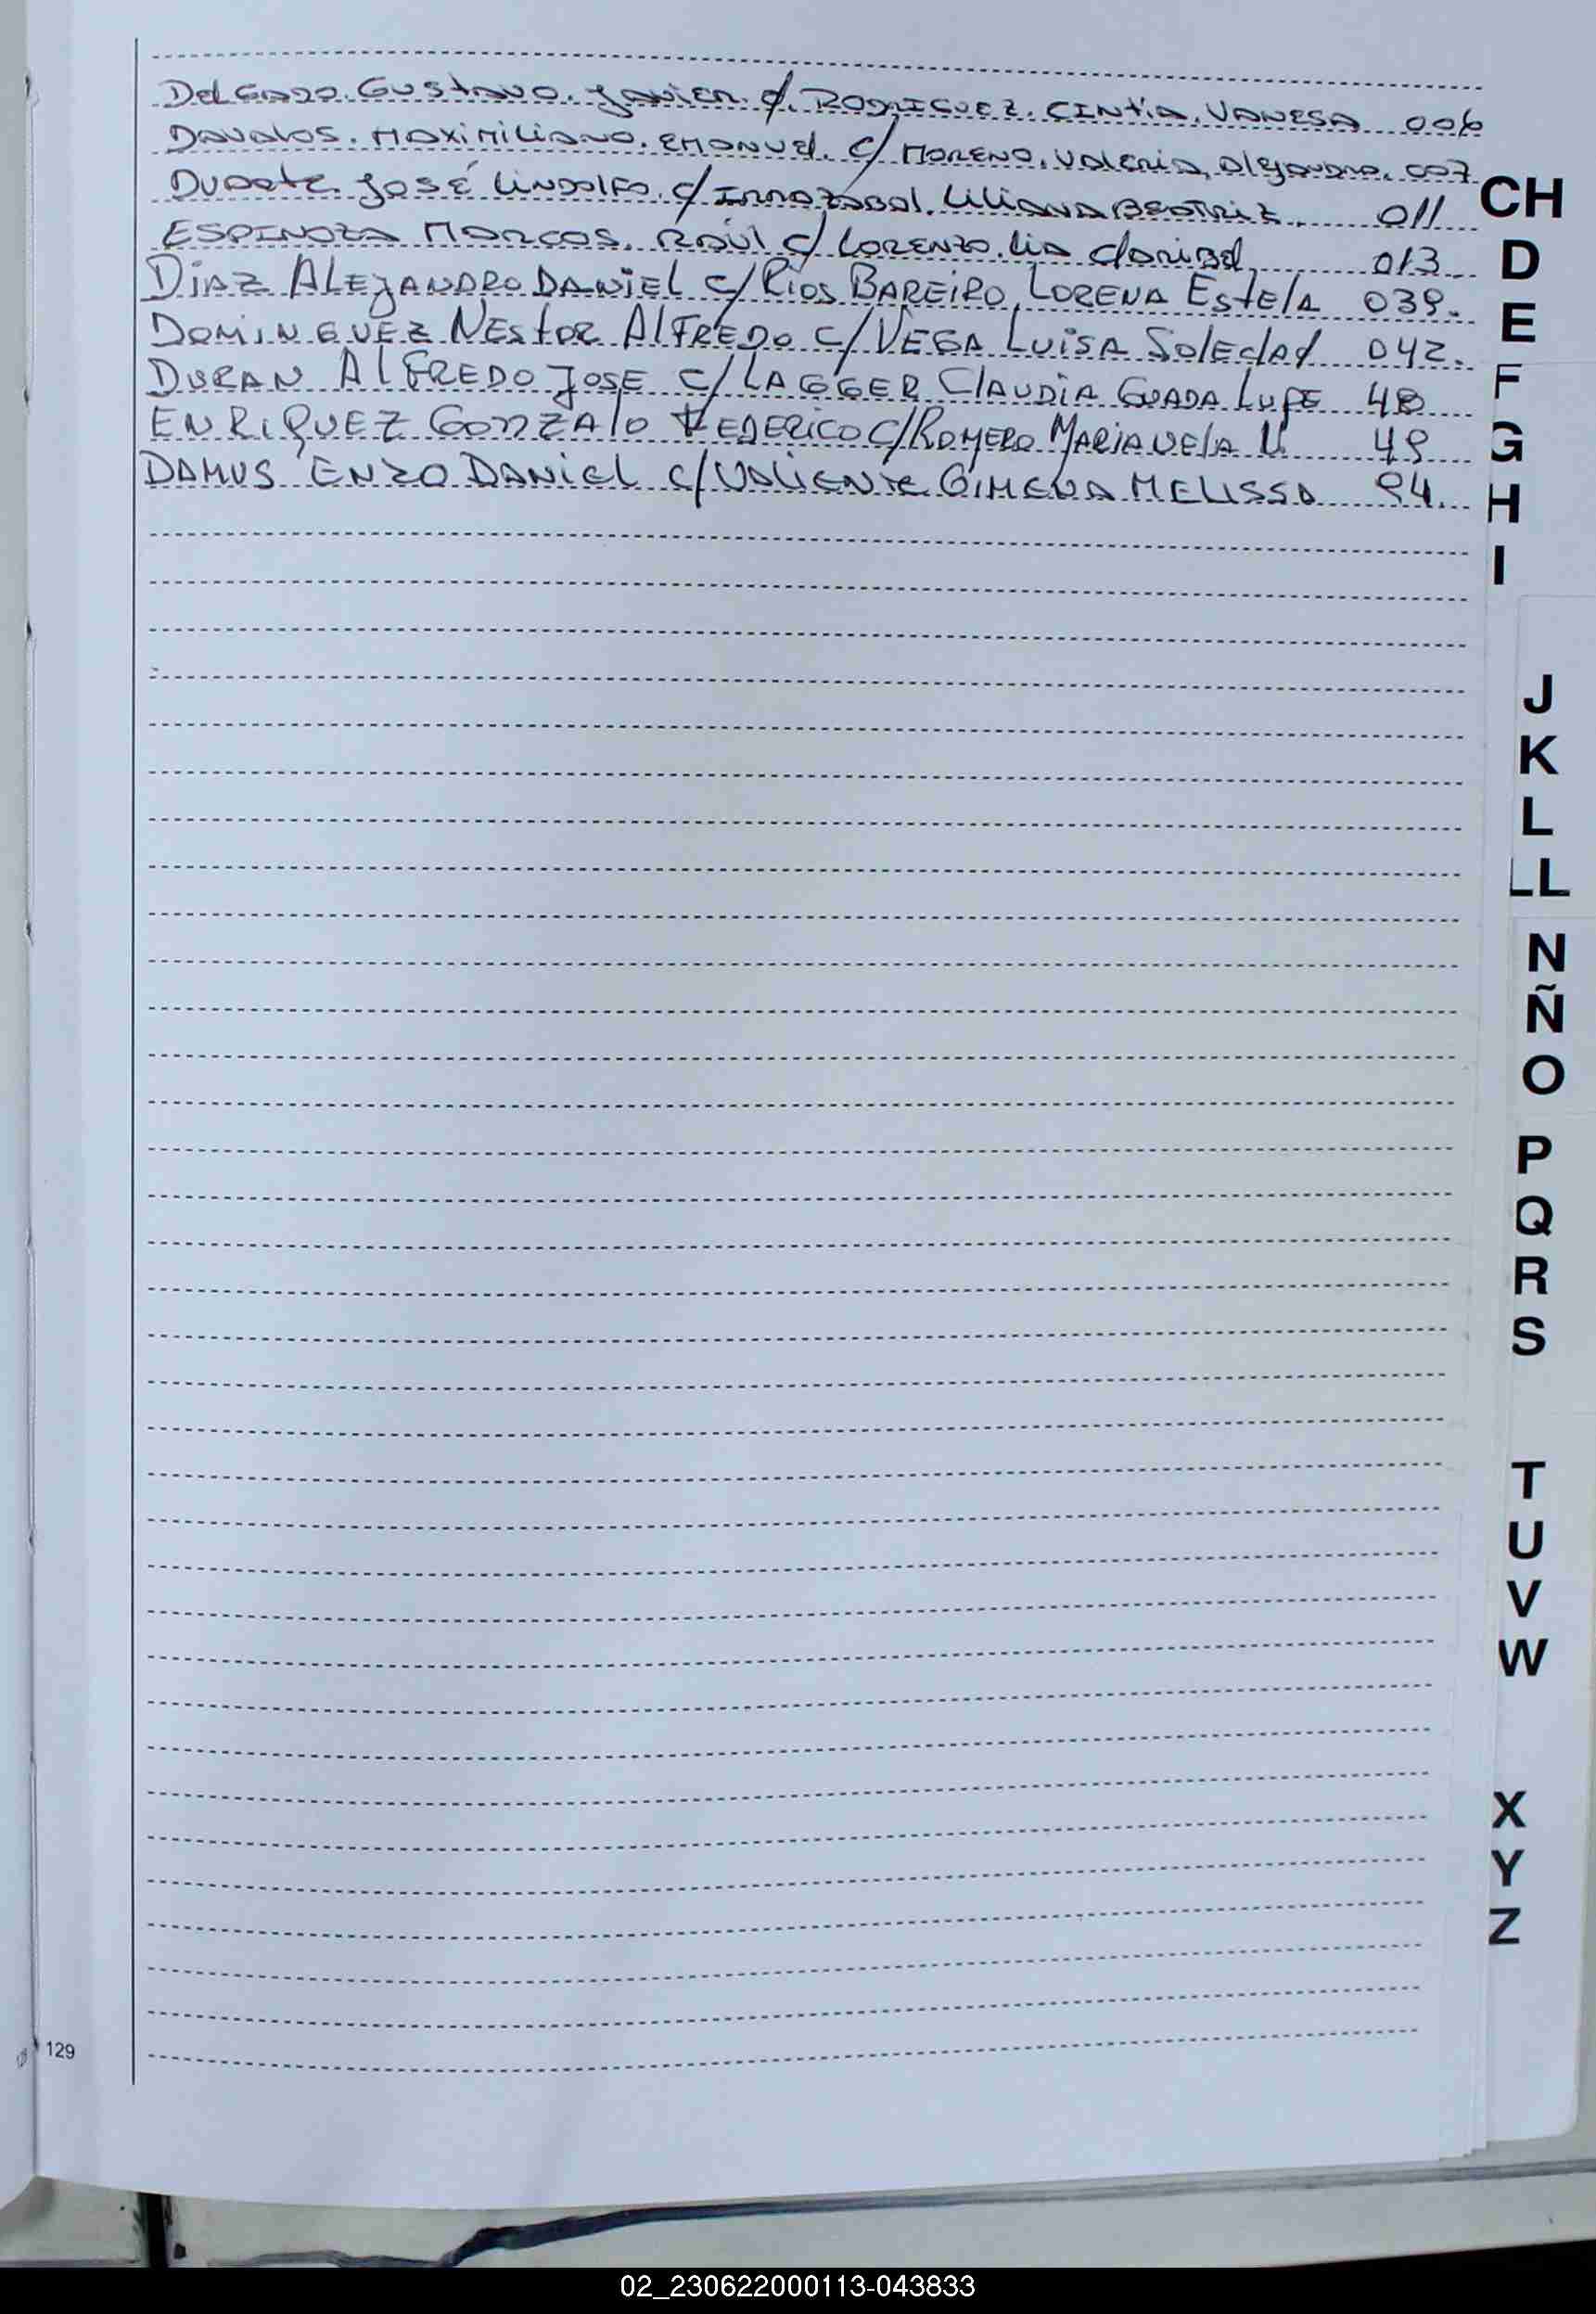 Delgado. Gustavo. Javier. c/. Rodriguez. Cintia. Vanesa 006
Davalos. Maximiliano. Emanuel. c/ Moreno. Valeria. Alejandra. 007
Duarte. José Lindolfo. c/ Irrazabal. Liliana Beatriz. 011
Espinoza Marcos. Raúl c/ Lorenzo. Lia Claribel 013
Diaz Alejandro Daniel c/ Rios Bareiro, Lorena Estela 039.
Dominguez Nestor Alfredo c/ Vega Luisa Soledad 042.
Duran Alfredo Jose c/ Lagger Claudia Guadalupe 48
Enriquez Gonzalo Federico c/ Romero Marianela 49
Damus Enzo Daniel c/ Valiente Gimena Melissa 94.
CH
D
E
F
G
H
I
J
K
L
LL
N
Ñ
O
P
Q
R
S
T
U
V
W
X
Y
Z
129
02_230622000113-043833